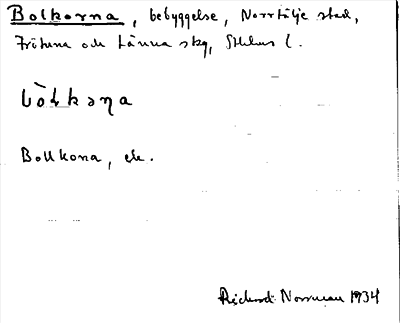 Bolkorna, bebyggelse, Norrtälje stad,
Frötuna och Länna skg, Sthlms l.
bòɫkəɳa
Bollkorna, ek.
Richard Norrman 1934